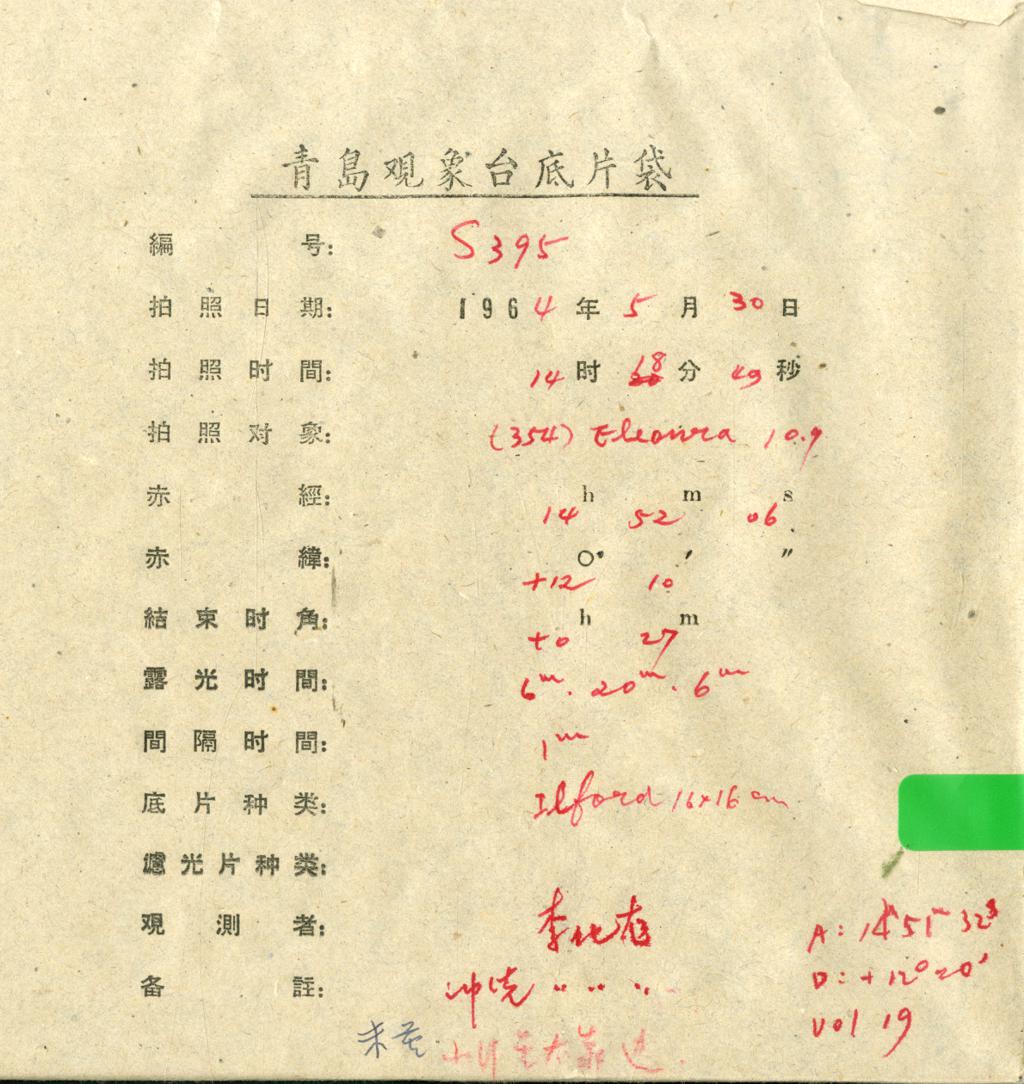 青島观象台底片袋
編号: S395
拍照日期: 1964年5月30日
拍照时間: 14时18分49秒
拍照对象: (354) Eleonora 10.9
赤經: 14h 52m 06s
赤緯: +12° 10′ ″
結束时角: +0h 27m
露光时間: 6m. 20m. 6m
間隔时間: 1m
底片种类: Ilford 16×16 cm
濾光片种类:
观測者: 李
A: 14h 51m 32s
备註: 冲洗 〃 〃 〃
D: +12° 20′
vol 19